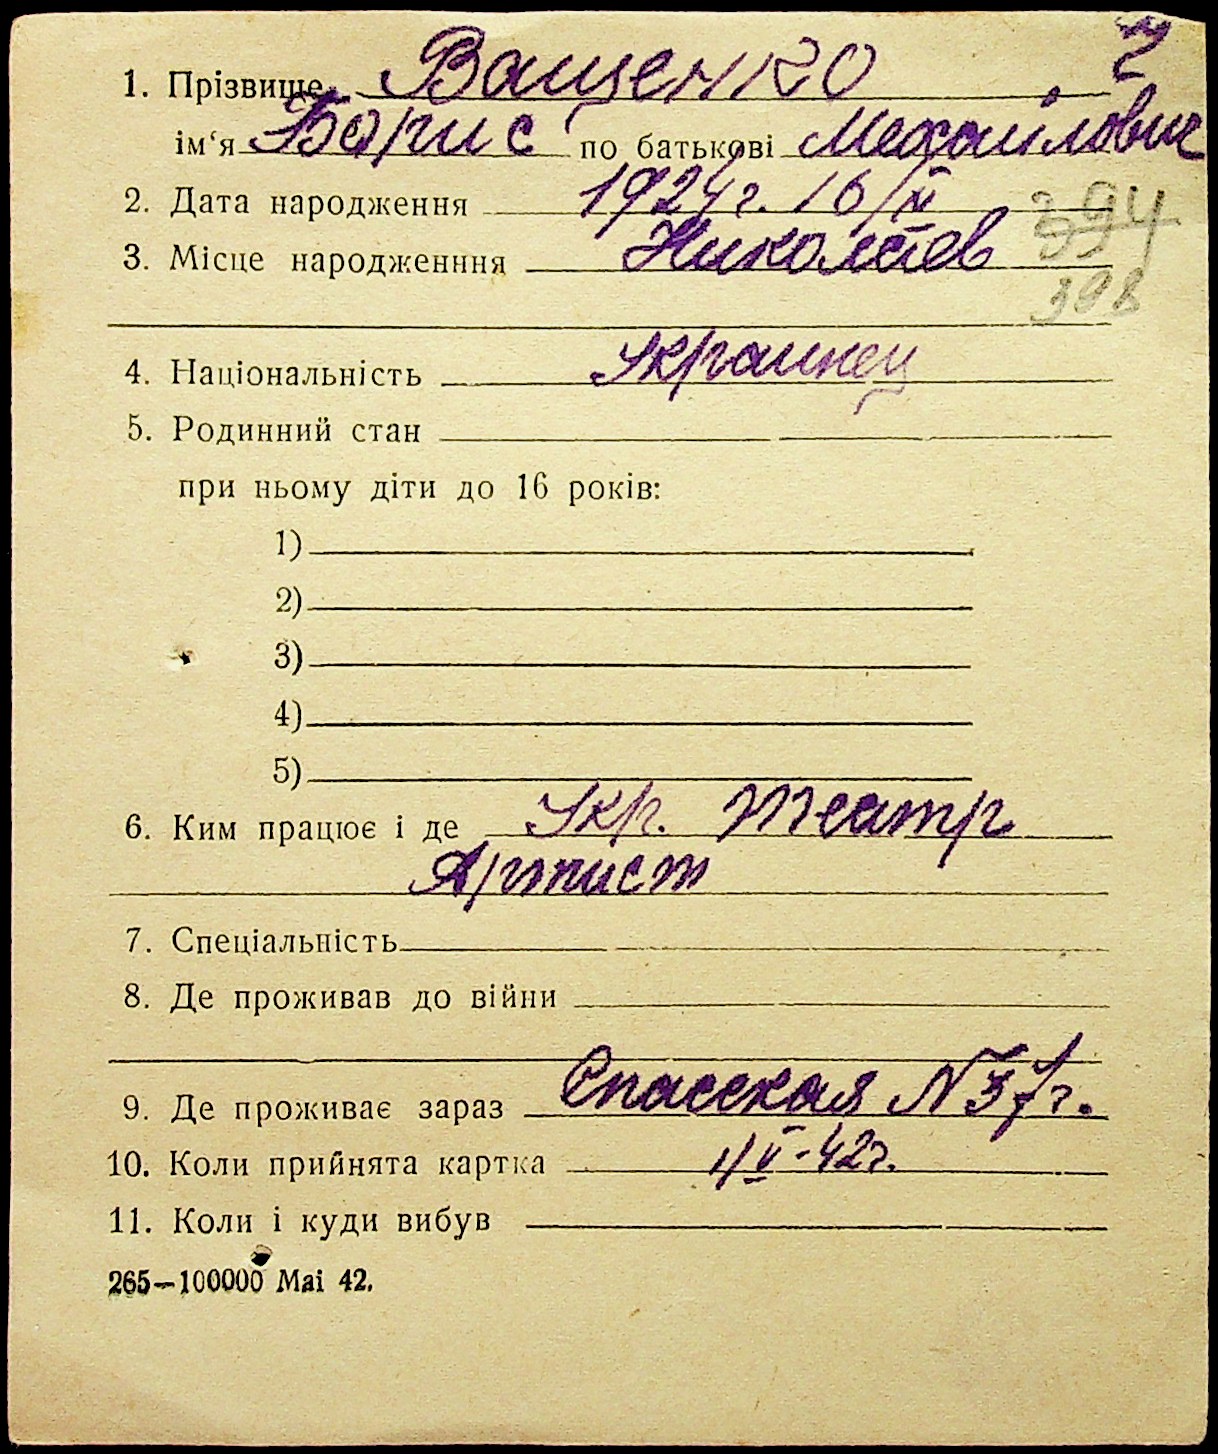 1. Прізвище Ващенко
ім'я Борис по батькові Михайлович
2. Дата народження 1924 г. 16/
394
3. Місце народженння Николаев
398
4. Національність Украинец
5. Родинний стан
при ньому діти до 16 років:
1)
2)
3)
4)
5)
6. Ким працює і де Укр. театр
Артист
7. Спеціальність
8. Де проживав до війни
9. Де проживає зараз Спасская N 37
10. Коли прийнята картка 1/V-42 г.
11. Коли і куди вибув
265—100000 Mai 42.